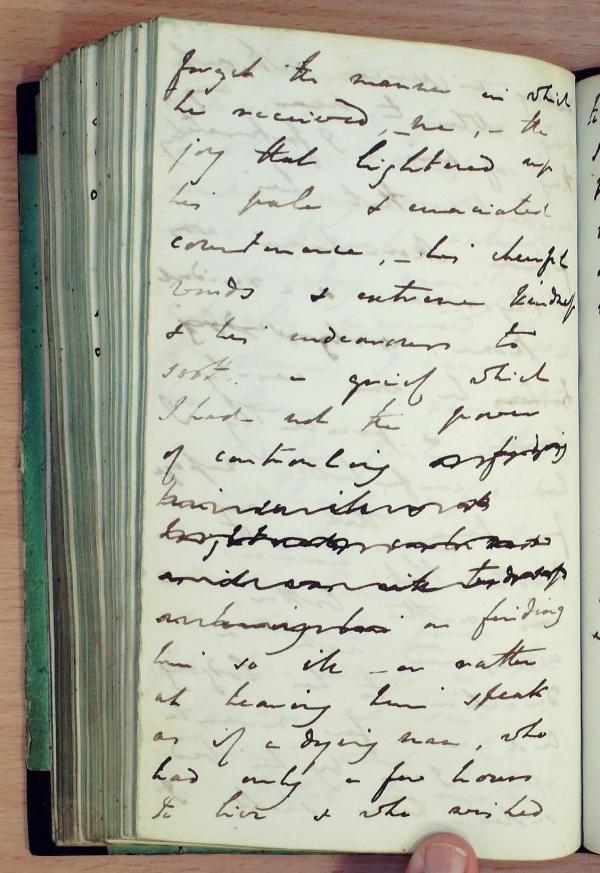 forget the manner in which
he received, me, – the
joy that lightened up
his pale & emaciated
countenance, – his cheerful
words & extreme kindness
& his endeavours to
sooth a grief which
I had not the power
of controuling
on finding
him so ill – or rather
at hearing him speak
as if a dying man, who
had only a few hours
to live & who wished